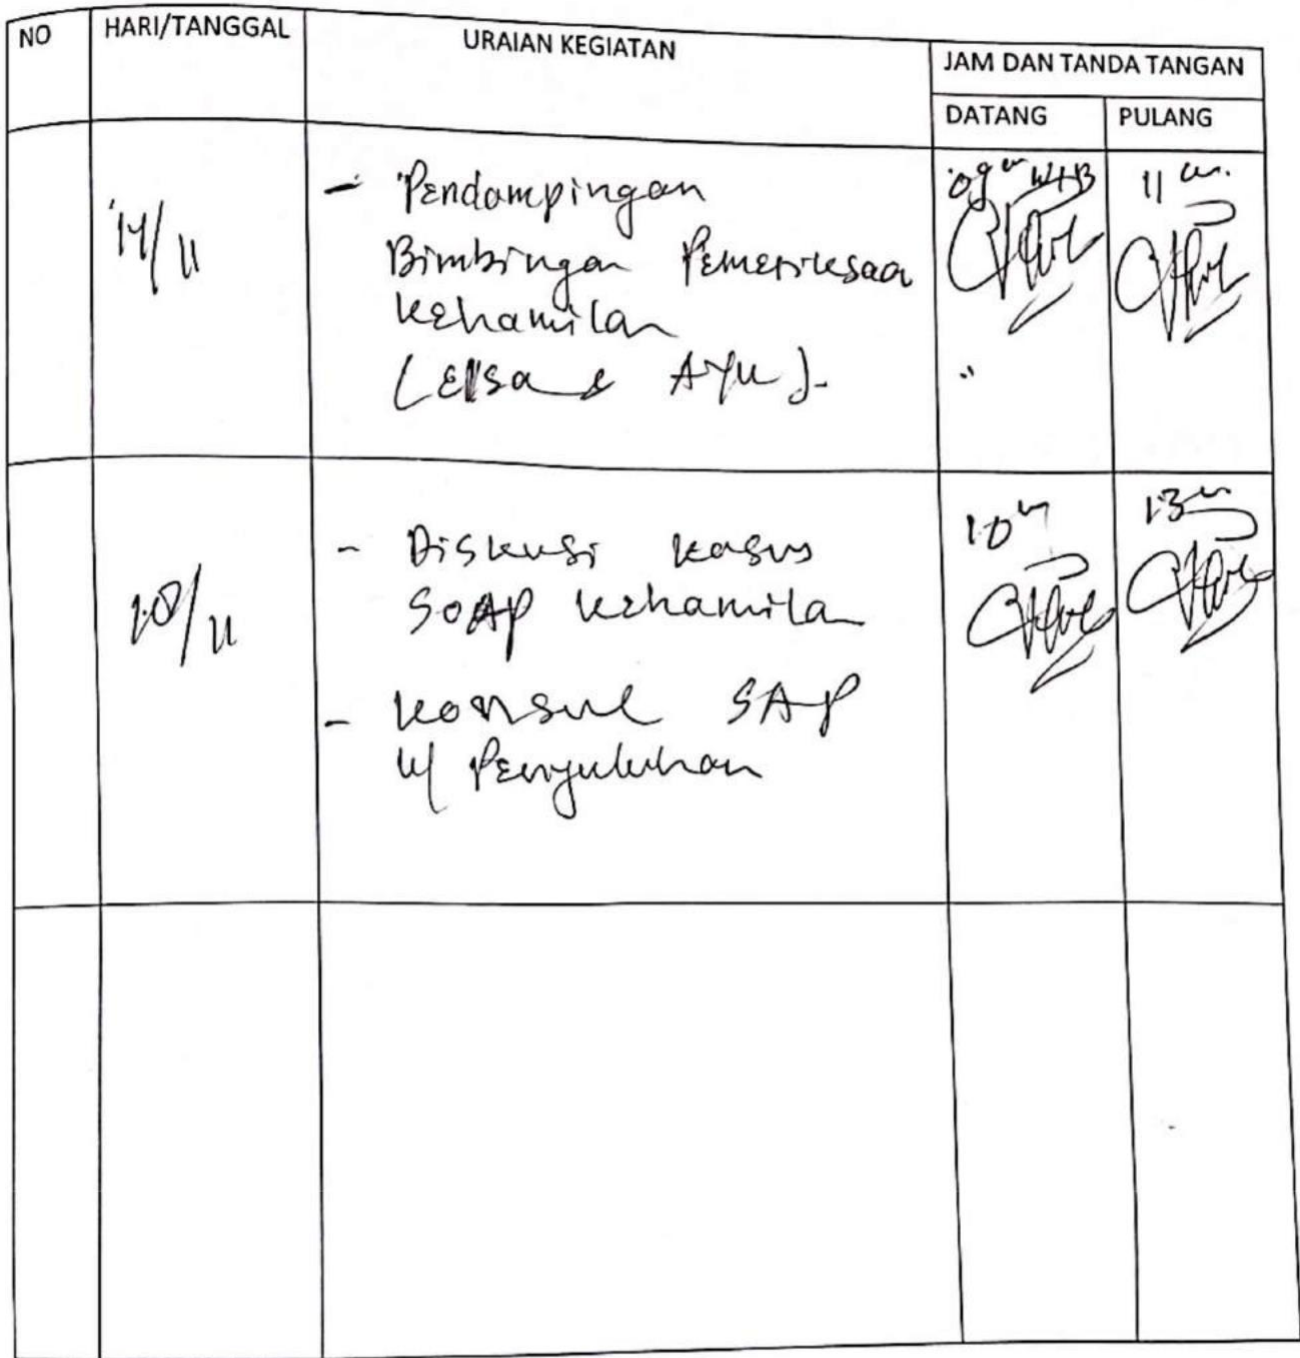 NO HARI/TANGGAL URAIAN KEGIATAN JAM DAN TANDA TANGAN
DATANG PULANG
- Pendampingan
Bimbingan Pemeriksaa
kehamilan
(Elsa & AYU).
14/11
09 00 WIB
11 00
- Diskusi kasus
SOAP kehamila
- konsul SAP
u/ Penyuluhan
/11
10 00
13 00